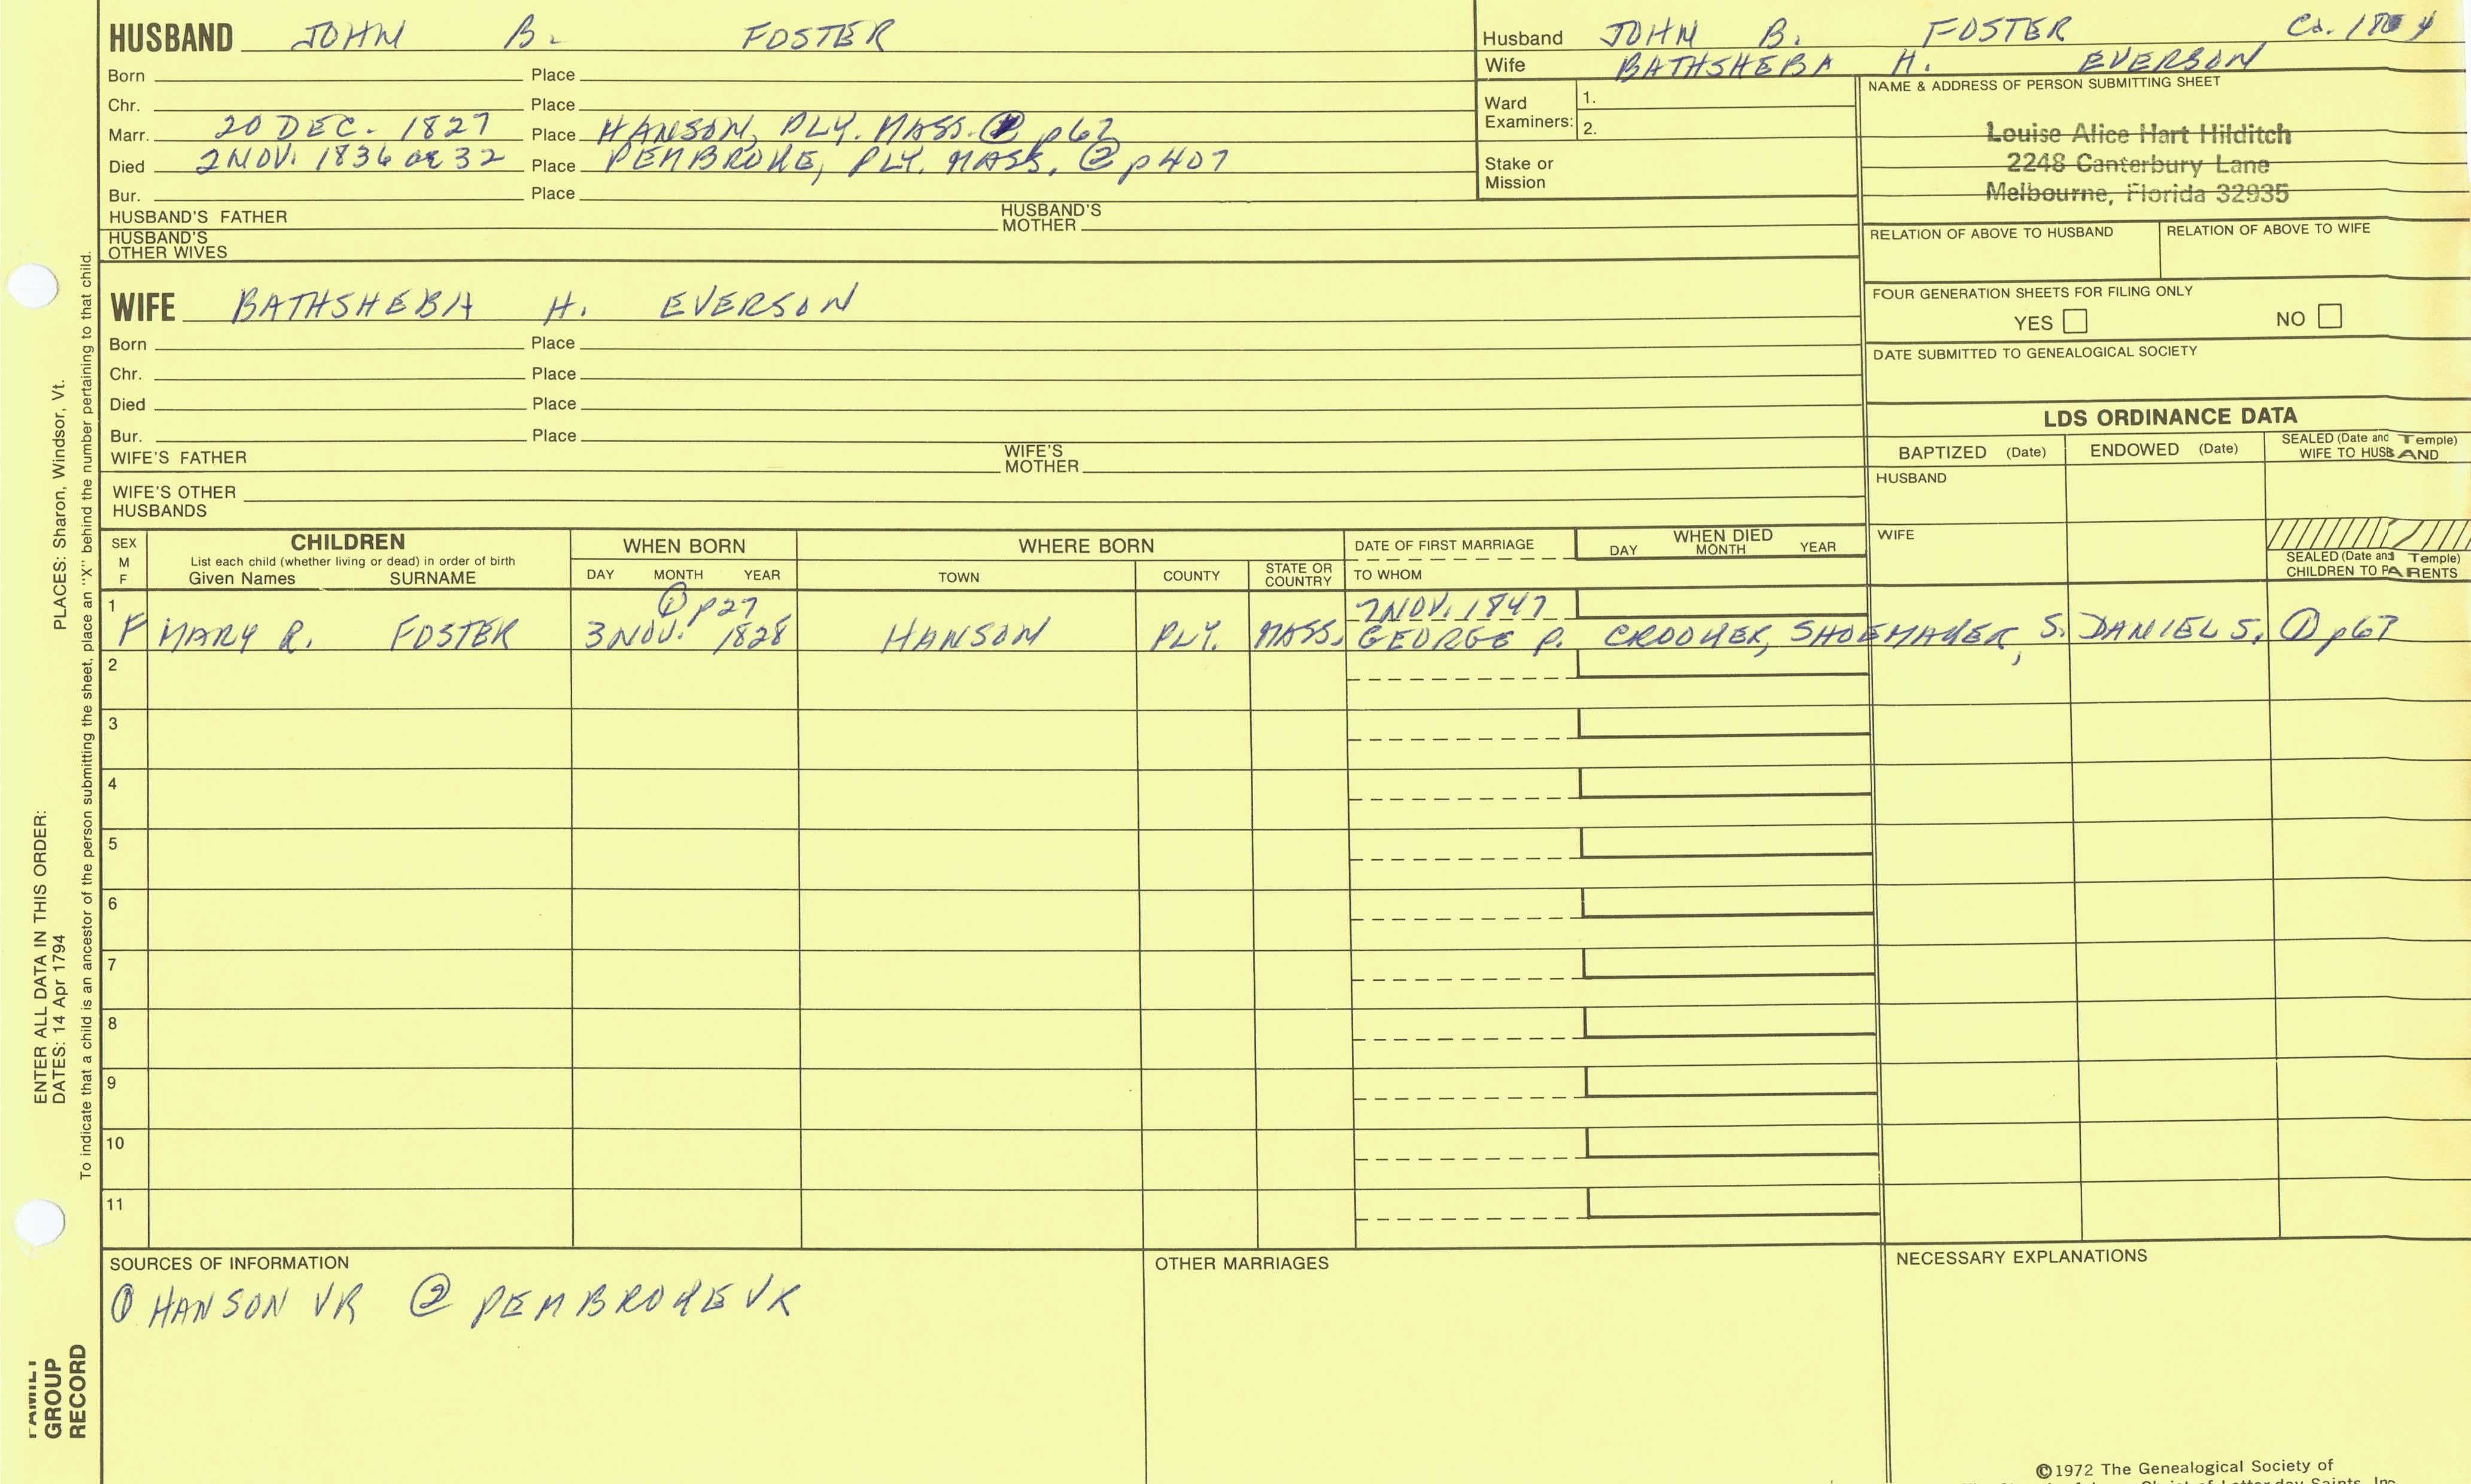 HUSBAND JOHN B. FOSTER
Born Place
Chr. Place
Marr. 20 DEC. 1827 Place HANSON, PLY. MASS. ① p67
Died 2 NOV. 1836 or 32 Place PEMBROKE, PLY. MASS. ② p407
Bur. Place
HUSBAND'S FATHER HUSBAND'S MOTHER
HUSBAND'S OTHER WIVES
Husband JOHN B. FOSTER Ca.
Wife BATHSHEBA H. EVERSON
Ward Examiners: 1.
2.
Stake or Mission
NAME & ADDRESS OF PERSON SUBMITTING SHEET
Louise Alice Hart Hilditch
2248 Canterbury Lane
Melbourne, Florida 32935
RELATION OF ABOVE TO HUSBAND RELATION OF ABOVE TO WIFE
FOUR GENERATION SHEETS FOR FILING ONLY
YES NO
DATE SUBMITTED TO GENEALOGICAL SOCIETY
WIFE BATHSHEBA H. EVERSON
Born Place
Chr. Place
Died Place
Bur. Place
WIFE'S FATHER WIFE'S MOTHER
WIFE'S OTHER HUSBANDS
LDS ORDINANCE DATA
BAPTIZED (Date) ENDOWED (Date) SEALED (Date and Temple) WIFE TO HUSBAND
HUSBAND
WIFE
SEALED (Date and Temple) CHILDREN TO PARENTS
SEX M F
CHILDREN
List each child (whether living or dead) in order of birth
Given Names SURNAME
WHEN BORN
DAY MONTH YEAR
WHERE BORN
TOWN COUNTY STATE OR COUNTRY
DATE OF FIRST MARRIAGE
TO WHOM
WHEN DIED
DAY MONTH YEAR
1 ① p27 7 NOV. 1847
F MARY R. FOSTER 3 NOV. 1828 HANSON PLY. MASS. GEORGE P. CROOKER, SHOEMAKER, S. DANIEL S. ① p67
2
3
4
5
6
7
8
9
10
11
SOURCES OF INFORMATION
① HANSON VR ② PEMBROKE VR
OTHER MARRIAGES
NECESSARY EXPLANATIONS
©1972 The Genealogical Society of
ENTER ALL DATA IN THIS ORDER:
DATES: 14 Apr 1794 PLACES: Sharon, Windsor, Vt.
To indicate that a child is an ancestor of the person submitting the sheet, place an "X" behind the number pertaining to that child.
FAMILY
GROUP
RECORD